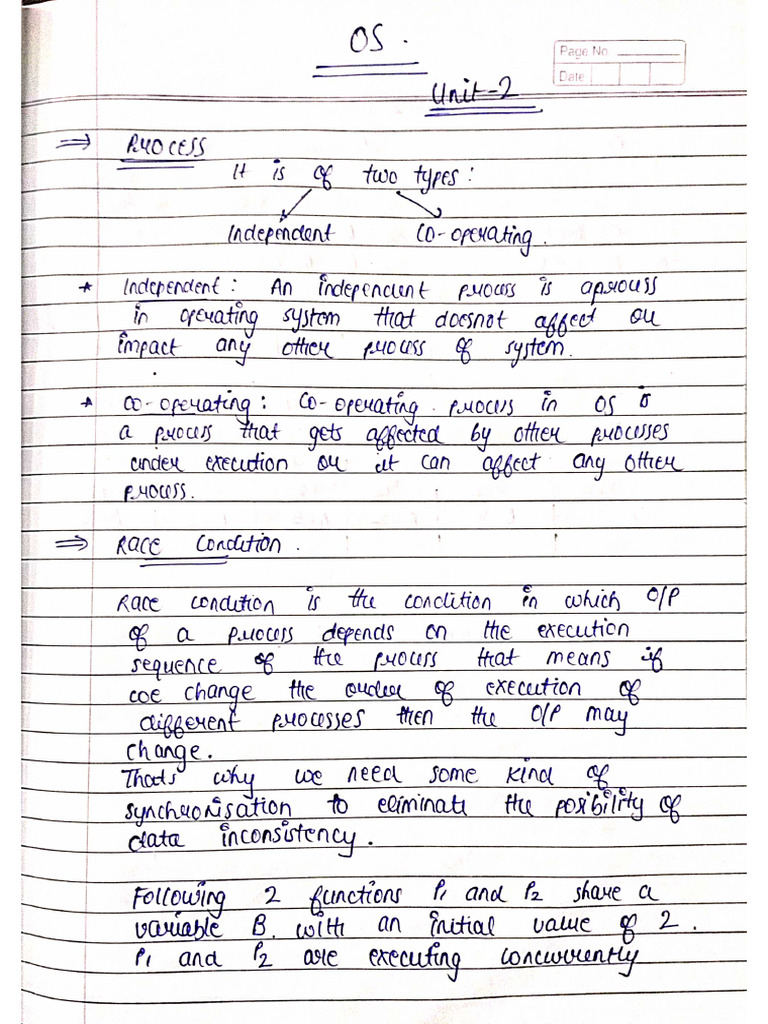 OS.
Page No.
Date
Unit-2
⇒ Process
It is of two types:
Independent Co-operating.
* Independent: An independent process is aprocess
in operating system that doesnot affect or
impact any other process of system.
* Co-operating: Co-operating process in OS is
a process that gets affected by other processes
under execution or it can affect any other
process.
⇒ Race Condition.
Race condition is the condition in which O/P
of a process depends on the execution
sequence of the process that means if
we change the order of execution of
different processes then the O/P may
change.
Thats why we need some kind of
synchronisation to eliminate the posibility of
data inconsistency.
Following 2 functions P1 and P2 share a
variable B. with an initial value of 2.
P1 and P2 are executing concurrently